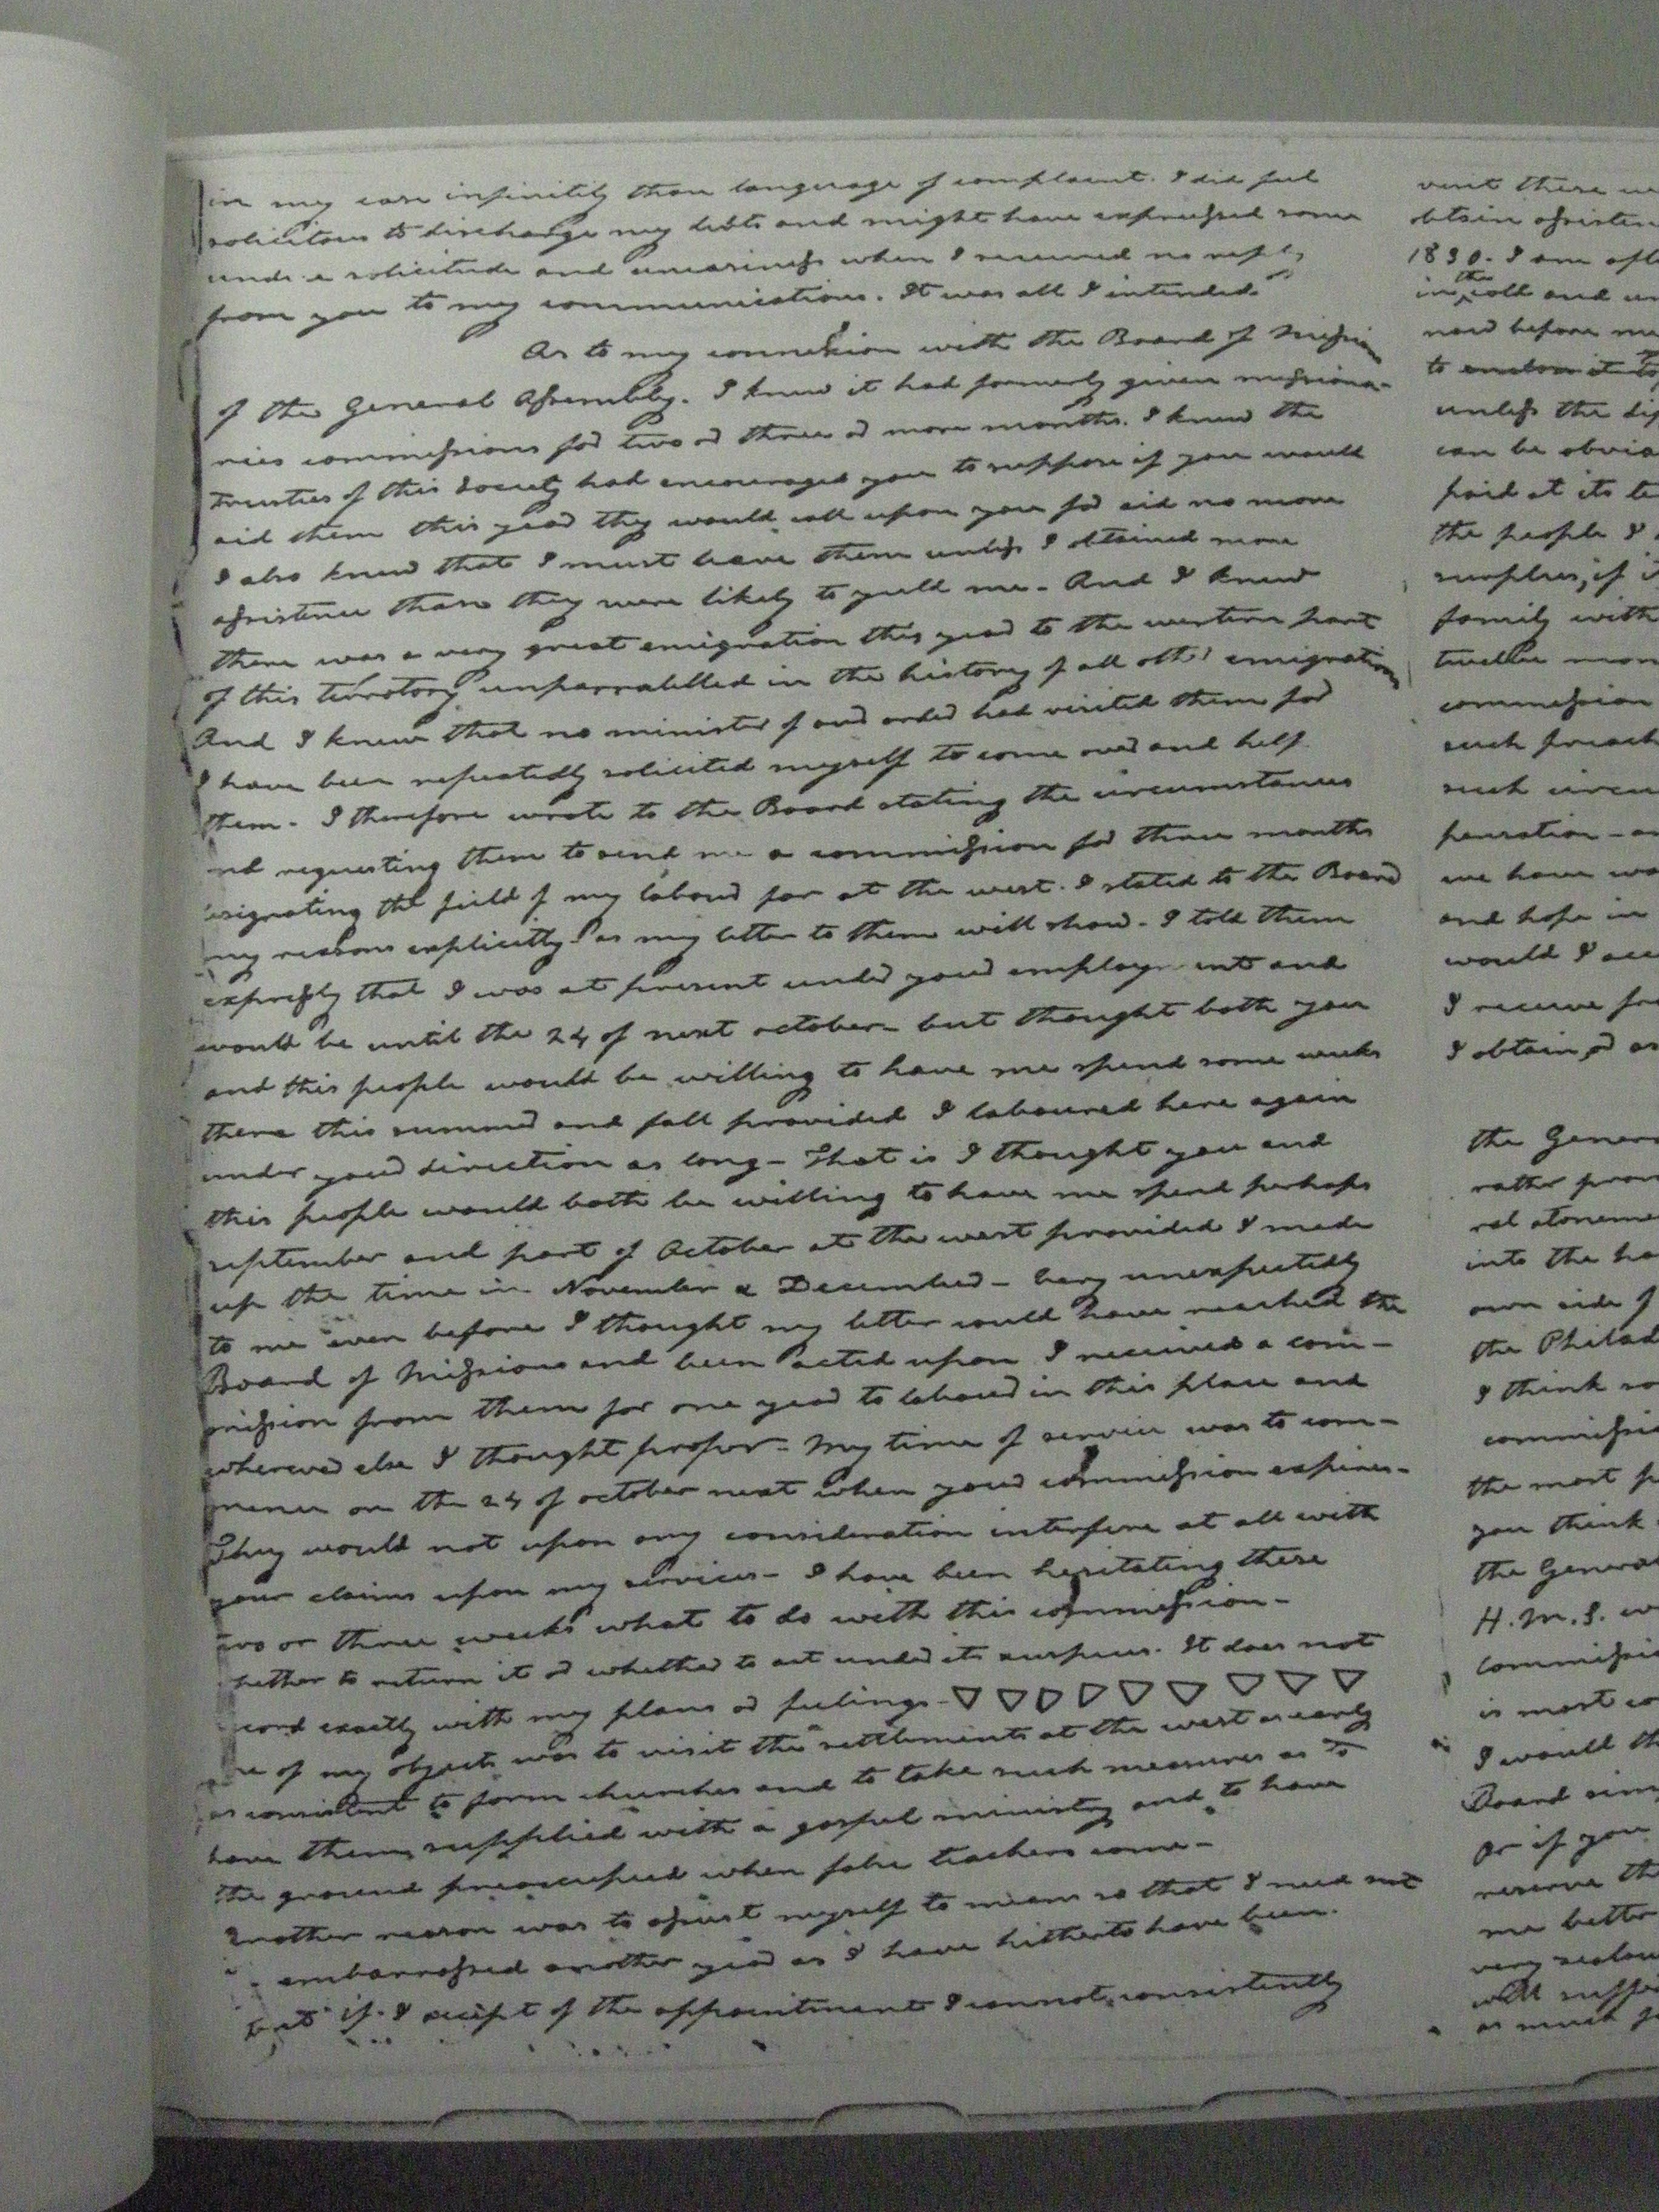 in my case infinitely than language of complaint. I did feel
solicitous to discharge my debts and might have expressed some
undue solicitude and uneasiness when I received no reply
from you to my communications. It was all I intended.
As to my connexion with the Board of Missions
of the General Assembly. I knew it had formerly given missiona-
ries commissions for two or three or more months. I knew the
trustees of this Society had encouraged you to suppose if you would
aid them this year they would call upon you for aid no more
I also knew that I must leave them unless I obtained more
assistence than they were likely to yield me - And I knew
there was a very great emigration this year to the western part
of this territory unparralelled in the history of all other emigration
And I knew that no minister of our order had visited them for
I have been repeatedly solicited myself to come over and help
them - I therefore wrote to the Board stating the circumstances
nd requesting them to send me a commission for three months
esignating the field of my labour far at the west. I stated to the Board
my reasons explicitly as my letter to them will show - I told them
expressly that I was at present under your employment and
would be until the 24 of next october - but thought both you
and this people would be willing to have me spend some weeks
there this summer and fall provided I laboured here again
under your direction as long - That is I thought you and
this people would both be willing to have me spend perhaps
september and part of October at the west provided I made
up the time in November & December - Very unexpectedly
to me even before I thought my letter could have reached the
Board of Missions and been acted upon I received a com-
mission from them for one year to labour in this place and
wherever else I thought proper - My time of service was to com-
mence on the 24 of october next when your commission expires -
They would not upon any consideration interfere at all with
your claims upon my services - I have been hesitating these
two or three weeks what to do with this commission -
hether to return it or whether to act under its auspices. It does not
cord exactly with my plans or feelings -
ne of my objects was to visit the settlements at the west as early
as consistent to form churches and to take such measures as to
have them supplied with a gospel ministry and to have
the ground preoccupied when false teachers come -
Another reason was to assist myself to means so that I need not
embarrassed another year as I have hitherto have been.
but if I accept of the appointment I cannot consistently
visit there
obtain assisten
1830. I am
in the cold and
now before me
to
unless the
can be obvia
paid at its
the people I
surplus, if
family with
twelve mon
commission
such preach
such circu
pensation -
we have
and hope in
would I
I receive
I obtain or
the Gener
rather
ral atoneme
into the
own side of
the Philad
I think
commissio
the most
you think
the General
H.M.S.
Commissio
is most
I would
Board
Or if you
reserve
me better
very
will suffe
as much